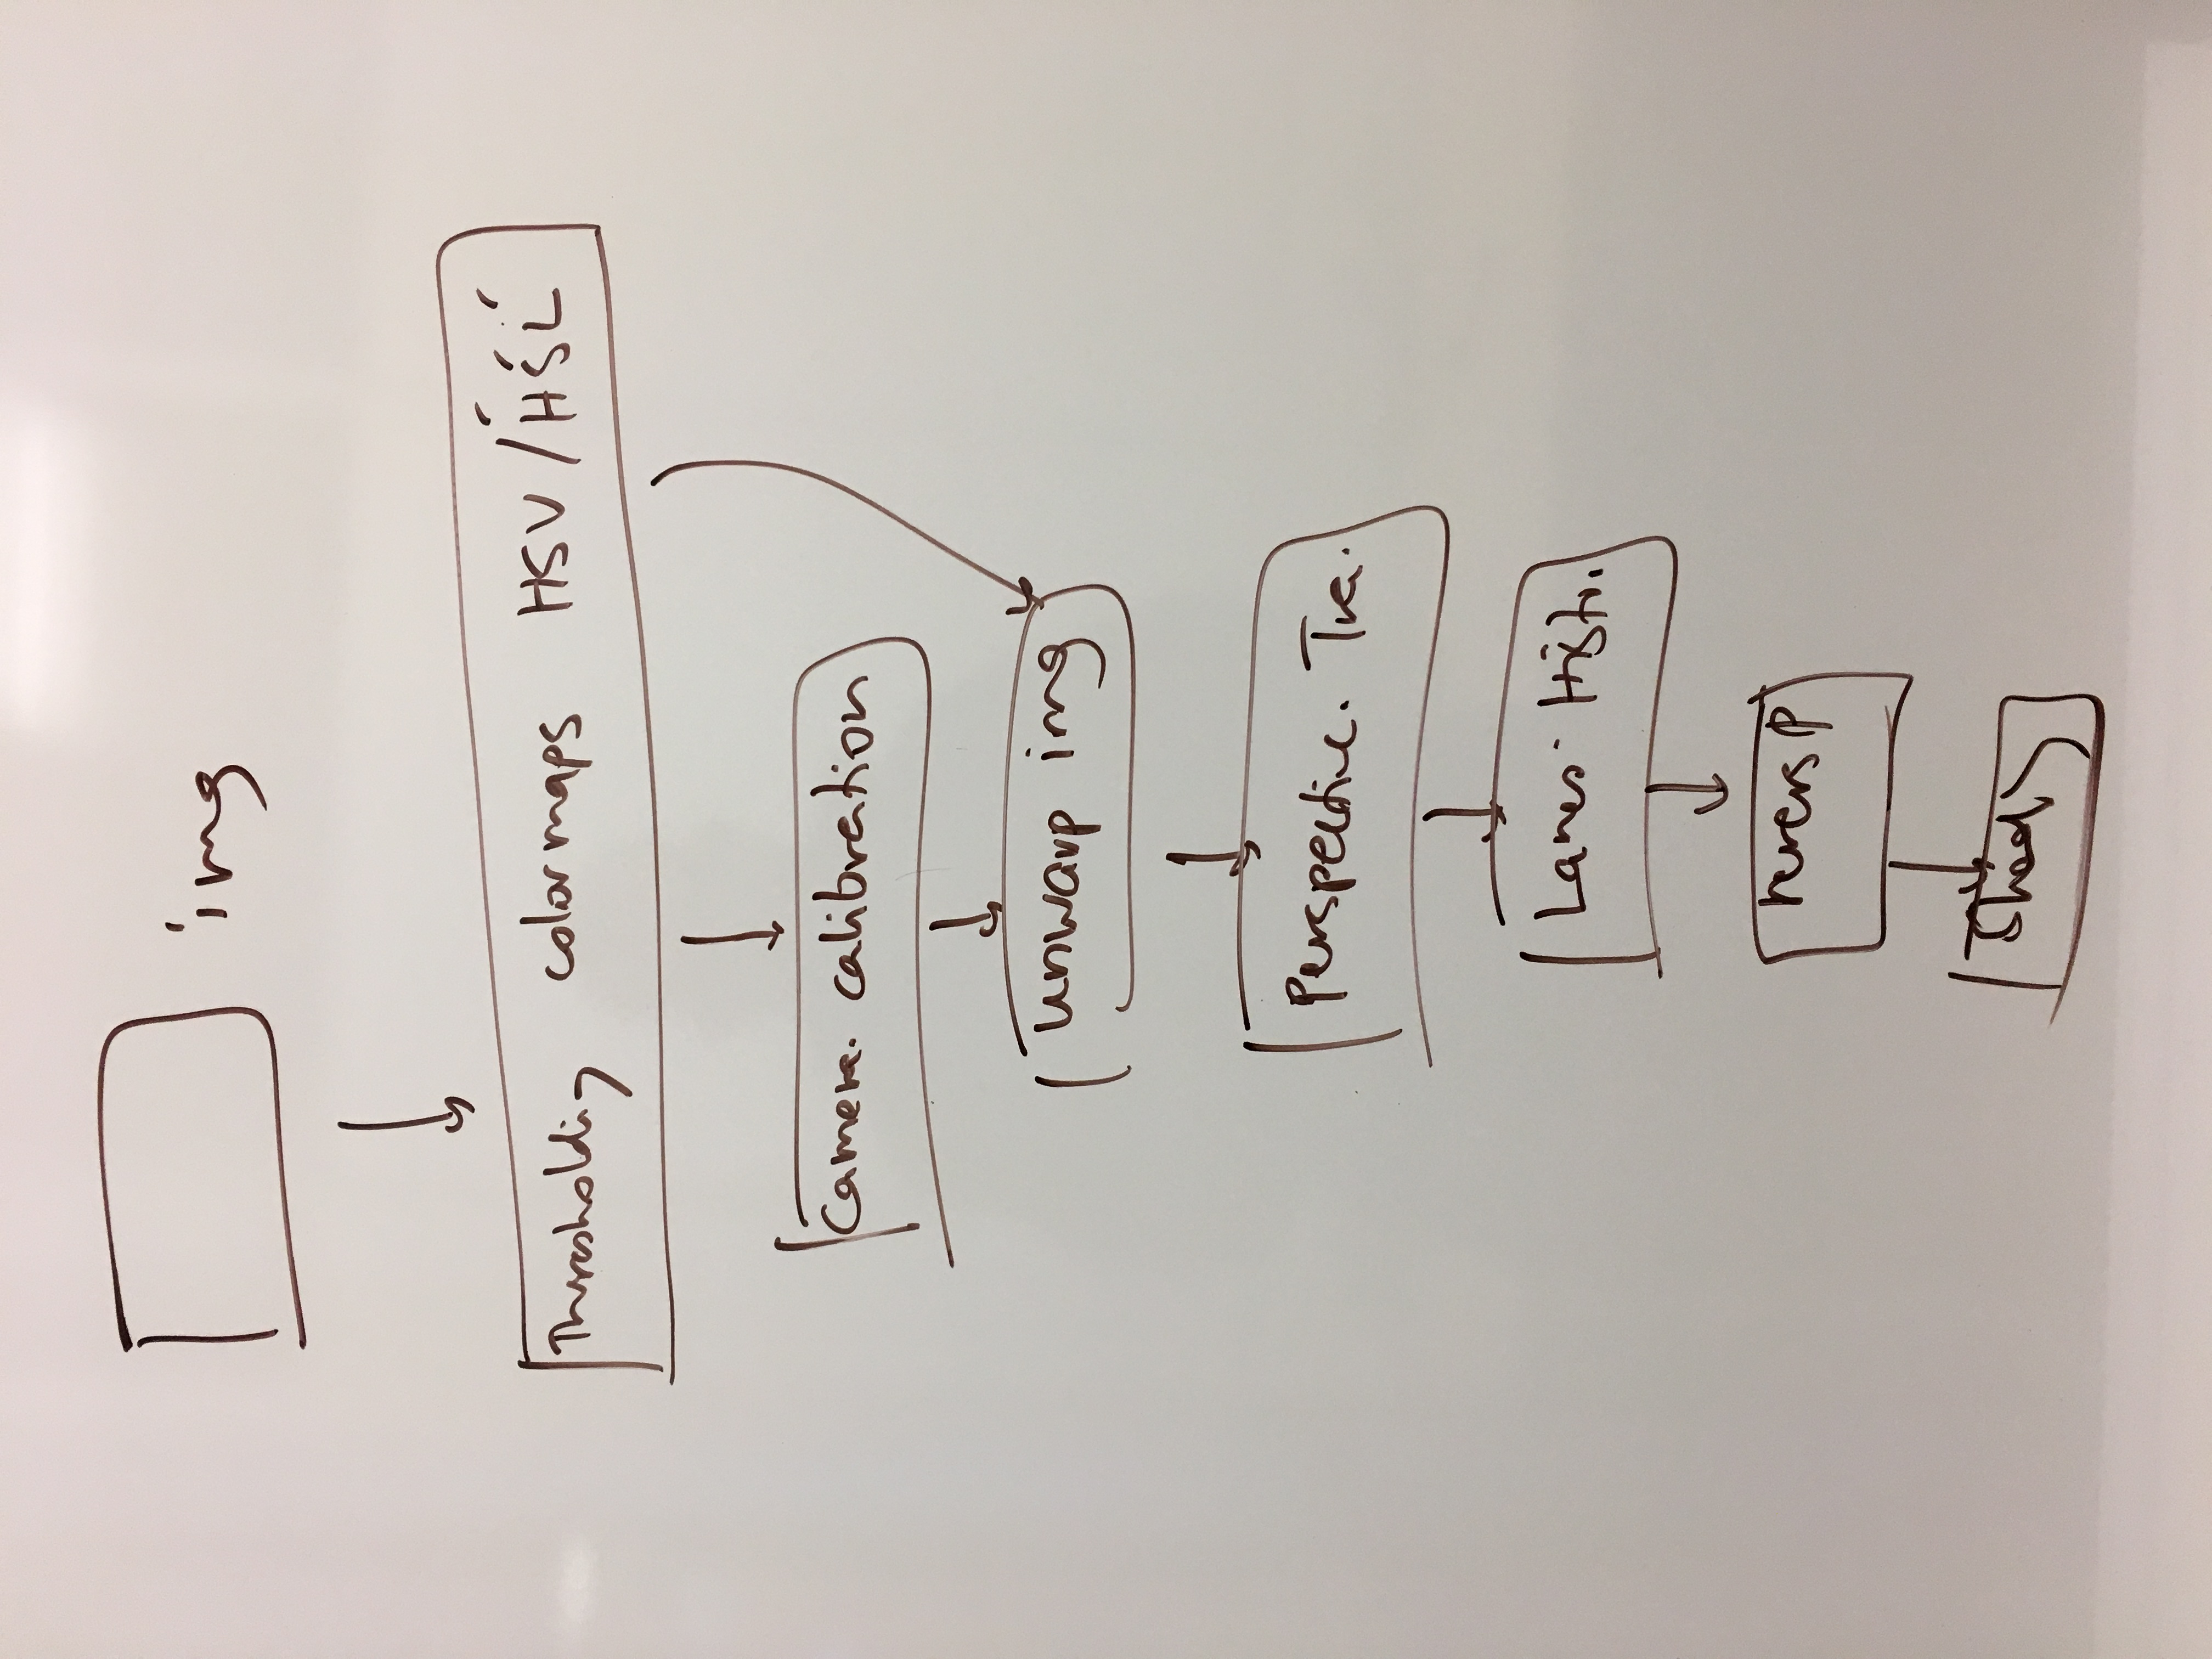 img
Thresholding colormaps HSV/HSL
Camera. calibration
unwarp img
Perspective. Tra.
Lanes. Histo.
revers P
Shady